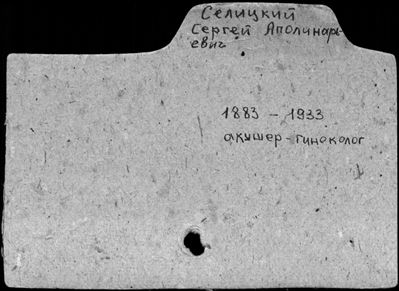 Селицкий
Сергей Аполинарь-
евич
1883 - 1933
акушер-гинеколог